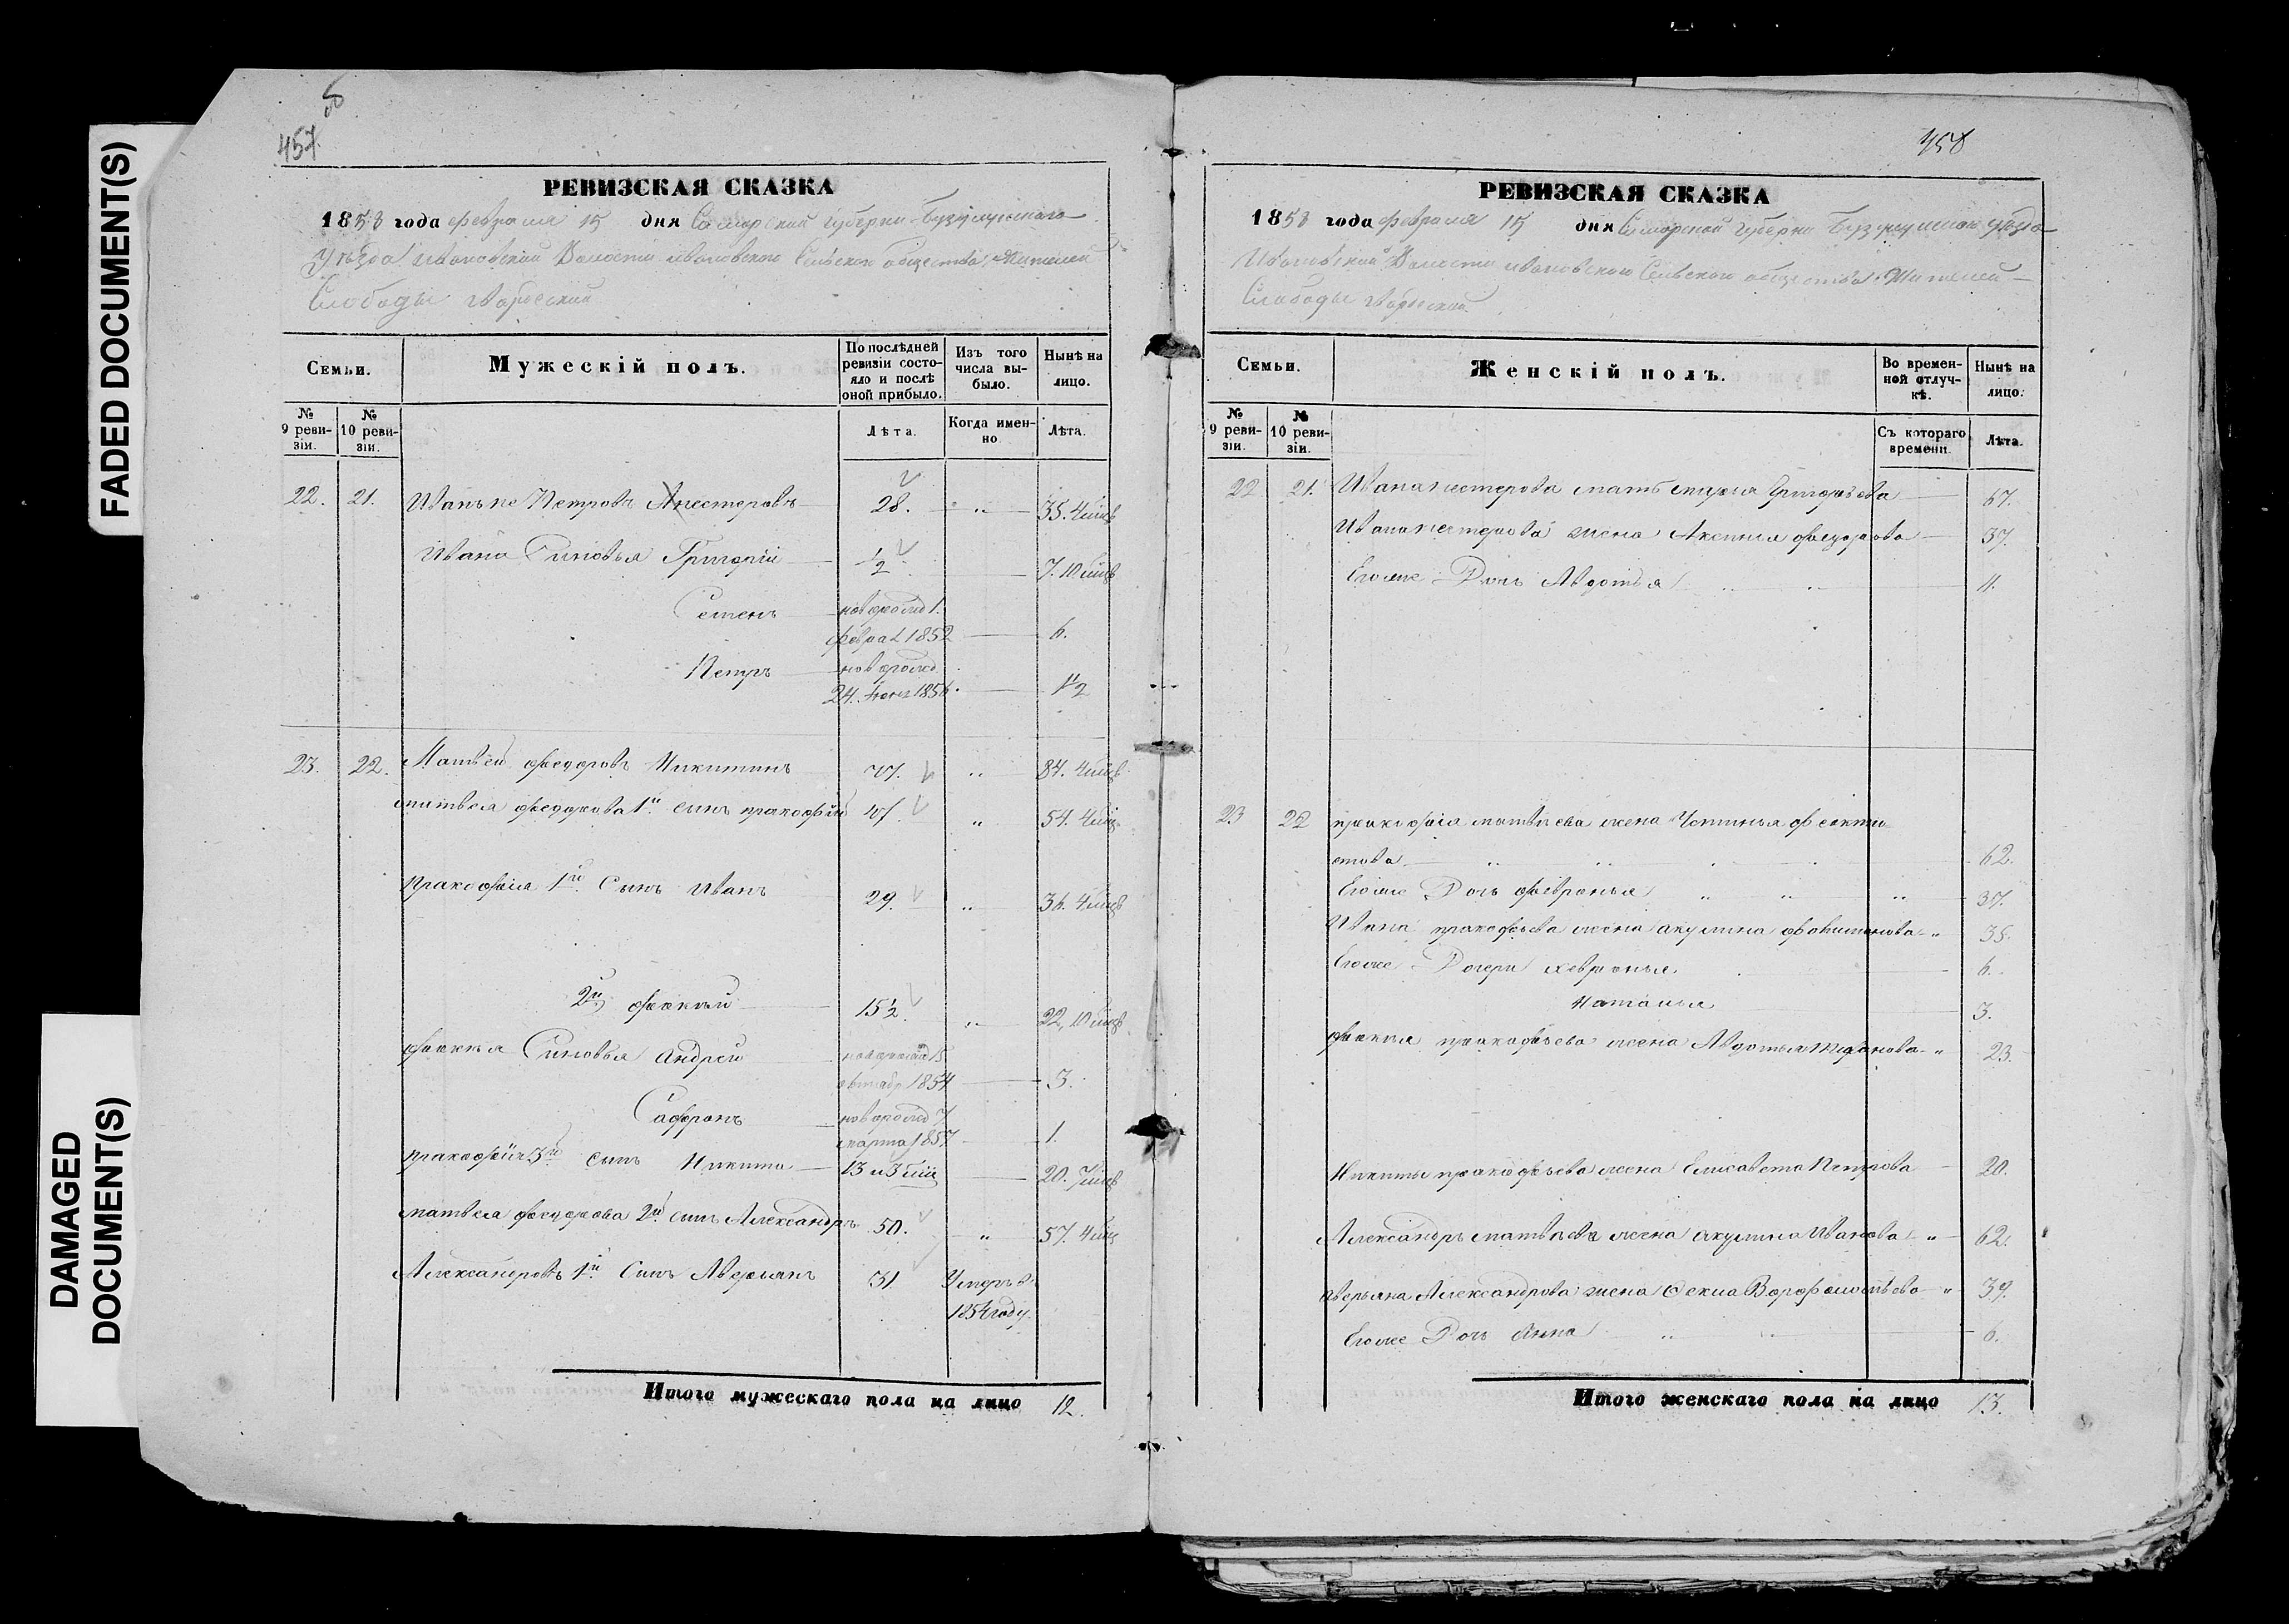 FADED DOCUMENT(S)
DAMAGED
DOCUMENT(S)
457
РЕВИЗСКАЯ СКАЗКА
1858 года февраля 15 дня Самарской губерни Бузулукскаго
Уезда Ивановской Волости ивановскаго Сельскаго общества Жителей
Слободы
Семьи.
Мужескій полъ.
По послѣдней
ревизіи состо-
яло и послѣ
оной прибыло.
Изъ того
числа вы-
было.
Нынѣ на
лицо.
№
9 реви-
зіи.
№
10 реви-
зіи.
Лѣта.
Когда имен-
но
Лѣта.
22. 21. Иванъ Петровъ Нестеровъ 28. „ 35. 4
Ивана Синовья Григорій ½ 7. 10
Семенъ новорожд 1.
февра 1852 6.
Петръ новорожд
24. 1856. 1½
23. 22. Матвей федоровъ Никитинъ 77. „ 84. 4
матвея федорова 1й сынъ пракофій 47. „ 54. 4
пракофія 1й Сынъ Иванъ 29. „ 36. 4
2й фокий 15½ „ 22, 10
фокия Синовья андрей новорожд 15
октябр 1854 3.
Сафронъ новорожд 7
марта 1857 1.
пракофія 3й сынъ Никита 13 и 3 20. 7
матвея федорова 2й сынъ Александръ 50. „ 57. 4
Александровъ 1й Сынъ Аверьянъ 31. Умеръ в
1854 году.
Итого мужескаго пола на лицо 12.
458
РЕВИЗСКАЯ СКАЗКА
1858 года февраля 15 дня Самарской губерни Бузулукскаго уезда
Ивановской Волости ивановскаго Сельскаго общества Жителей
Слободы
Семьи.
Женскій полъ.
Во времен-
ной отлуч-
кѣ.
Нынѣ на
лицо.
№
9 реви-
зіи.
№
10 реви-
зіи.
Съ котораго
времени.
Лѣта.
22 21. Ивана нестерова мать марья Григорьева 67.
Ивана нестерова жена Аксинья федорова 37.
Его же Дочь Авдотья 11.
23 22 пракофія матвеева жена Устинья феокти
стова 62.
Его же Дочь февронья 37.
Ивана пракофьева жена акулина 35.
Его же Дочери хевронья 6.
Наталья 3.
фокия пракофьева жена Авдотья 23.
Никиты пракофьева жена Елисавета Петрова 20.
Александръ матвеева жена акулина Иванова „ 62.
аверьяна Александрова жена 39.
Его же Дочь Анна 6.
Итого женскаго пола на лицо 13.